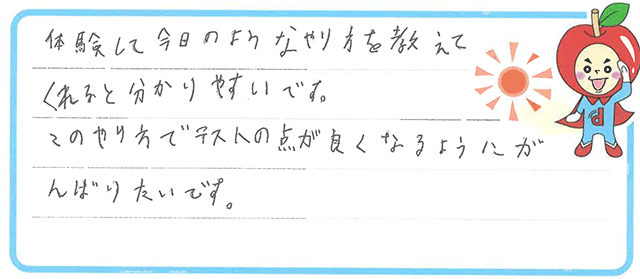 体験して今日のようなやり方を教えて
くれると分かりやすいです。
このやり方でテストの点が良くなるようにが
んばりたいです。